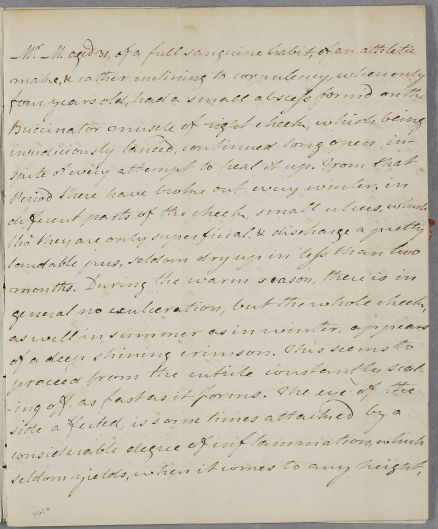 Mr. M. aged 31, of a full sanguine habit, of an athletic
make, & rather inclining to corpulency, when only
four years old, had a small abscess form'd on the
Buccinator muscle of right cheek, which being
injudiciously lanced, continued long open, in
spite of every attempt to heal it up. From that
Period there have broke out every winter, in
different parts of the cheek, small ulcers, which
tho' they are only superficial, & discharge a pretty
laudable pus, seldom dry up in less than two
months. During the warm season, there is in
general no exulceration, but the whole cheek,
as well in summer as in winter, appears
of a deep shining crimson. This seems to
proceed from the cuticle constantly scal-
-ing off, as fast as it forms. The eye of the
side affected, is some times attacked by a
considerable degree of inflammation, which
seldom yields, when it comes to any height,